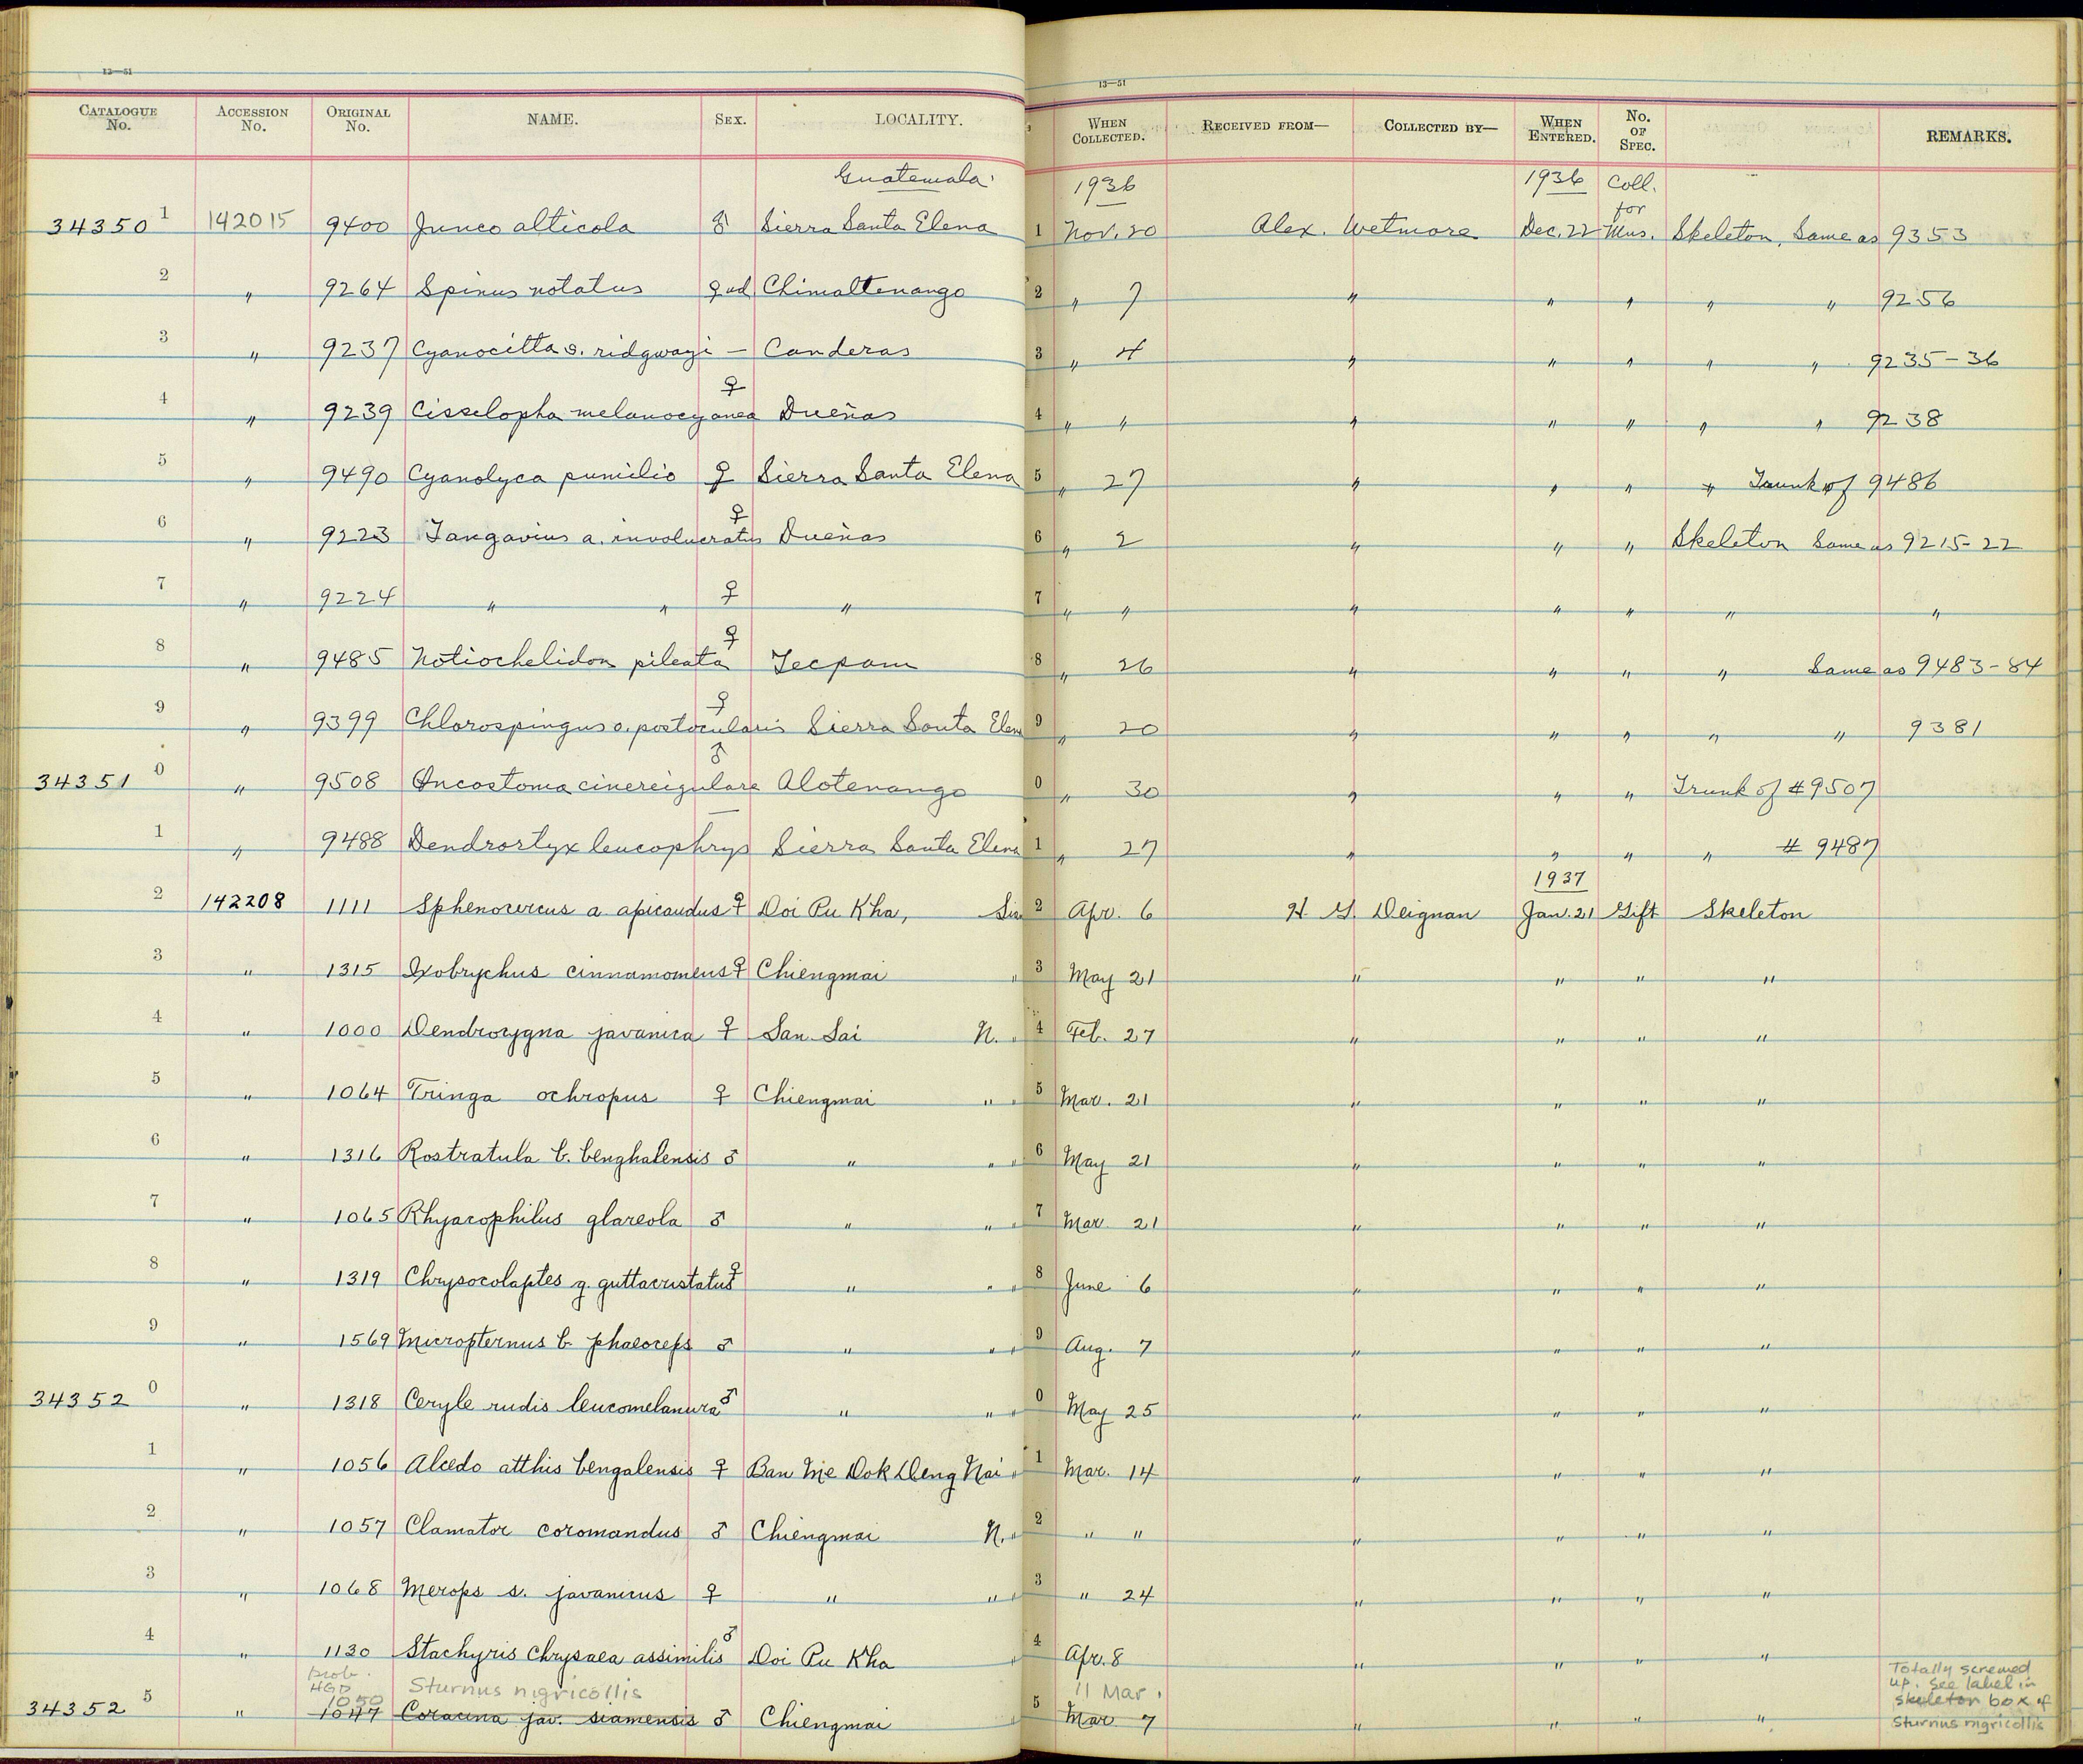 12—51
13—51
CATALOGUE No. ACCESSION No. ORIGINAL No. NAME. SEX. LOCALITY. WHEN COLLECTED. RECEIVED FROM— COLLECTED BY— WHEN ENTERED. No. OF SPEC. REMARKS.
Guatemala 1936 1936 Coll. for
34350 1 142015 9400 Junco alticola ♂ Sierra Santa Elena 1 Nov. 20 Alex. Wetmore Dec. 22 Mus. Skeleton, Same as 9353
2 " 9264 Spinus notatus ♀ ad Chimaltenango 2 " 7 " " " " " 9256
3 " 9237 Cyanocitta s. ridgwayi — Canderas 3 " 4 " " " " " 9235-36
4 " 9239 Cisselopha melanocyanea ♀ Dueñas 4 " " " " " " " 9238
5 " 9490 Cyanolyca pumilio ♀ Sierra Santa Elena 5 " 27 " " " " Trunk of 9486
6 " 9223 Tangavius a. involucratus ♀ Dueñas 6 " 2 " " " Skeleton Same as 9215-22
7 " 9224 " " ♀ " 7 " " " " " " "
8 " 9485 Notiochelidon pileata ♀ Tecpam 8 " 26 " " " " Same as 9483-84
9 " 9399 Chlorospingus o. postocularis ♀ Sierra Santa Elena 9 " 20 " " " " " 9381
34351 0 " 9508 Oncostoma cinereigulare ♂ Alotenango 0 " 30 " " " Trunk of #9507
1 " 9488 Dendrortyx leucophrys — Sierra Santa Elena 1 " 27 " " " " # 9487
1937
2 142208 1111 Sphenocercus a. apicaudus ♀ Doi Pu Kha, Siam 2 Apr. 6 H. G. Deignan Jan. 21 Gift Skeleton
3 " 1315 Ixobrychus cinnamomeus ♀ Chiengmai " 3 May 21 " " " "
4 " 1000 Dendrocygna javanica ♀ San Sai N. " 4 Feb. 27 " " " "
5 " 1064 Tringa ochropus ♀ Chiengmai " " 5 Mar. 21 " " " "
6 " 1316 Rostratula b. benghalensis ♂ " " " 6 May 21 " " " "
7 " 1065 Rhyacophilus glareola ♂ " " " 7 Mar. 21 " " " "
8 " 1319 Chrysocolaptes g. guttacristatus ♀ " " " 8 June 6 " " " "
9 " 1569 Micropternus b. phaioceps ♂ " " " 9 Aug. 7 " " " "
34352 0 " 1318 Ceryle rudis leucomelanura ♂ " " " 0 May 25 " " " "
1 " 1056 Alcedo atthis bengalensis ♀ Ban Me Dok Deng Nai " 1 Mar. 14 " " " "
2 " 1057 Clamator coromandus ♂ Chiengmai N. " 2 " " " " " "
3 " 1068 Merops s. javanicus ♀ " " " 3 " 24 " " " "
4 " 1130 Stachyris chrysaea assimilis ♂ Doi Pu Kha " 4 Apr. 8 " " " "
prob. HGD 1050 Sturnus nigricollis 11 Mar.
34352 5 " 1047 Coracina jav. siamensis ♂ Chiengmai " 5 Mar. 7 " " " "
Totally screwed
up. See label in
skeleton box of
Sturnus nigricollis